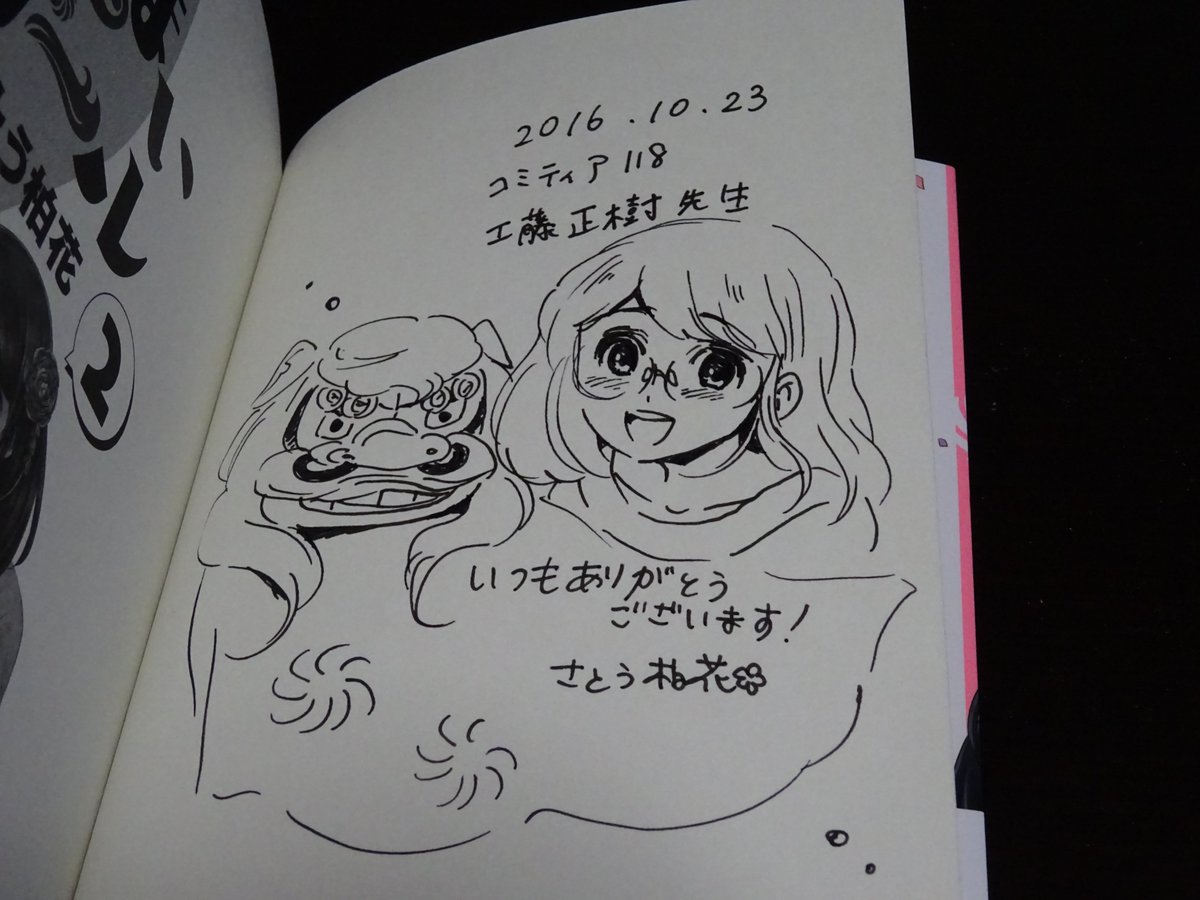 2016.10.23
コミティア118
工藤正樹先生
いつもありがとう
ございます!
さとう柚花
う柚花
2